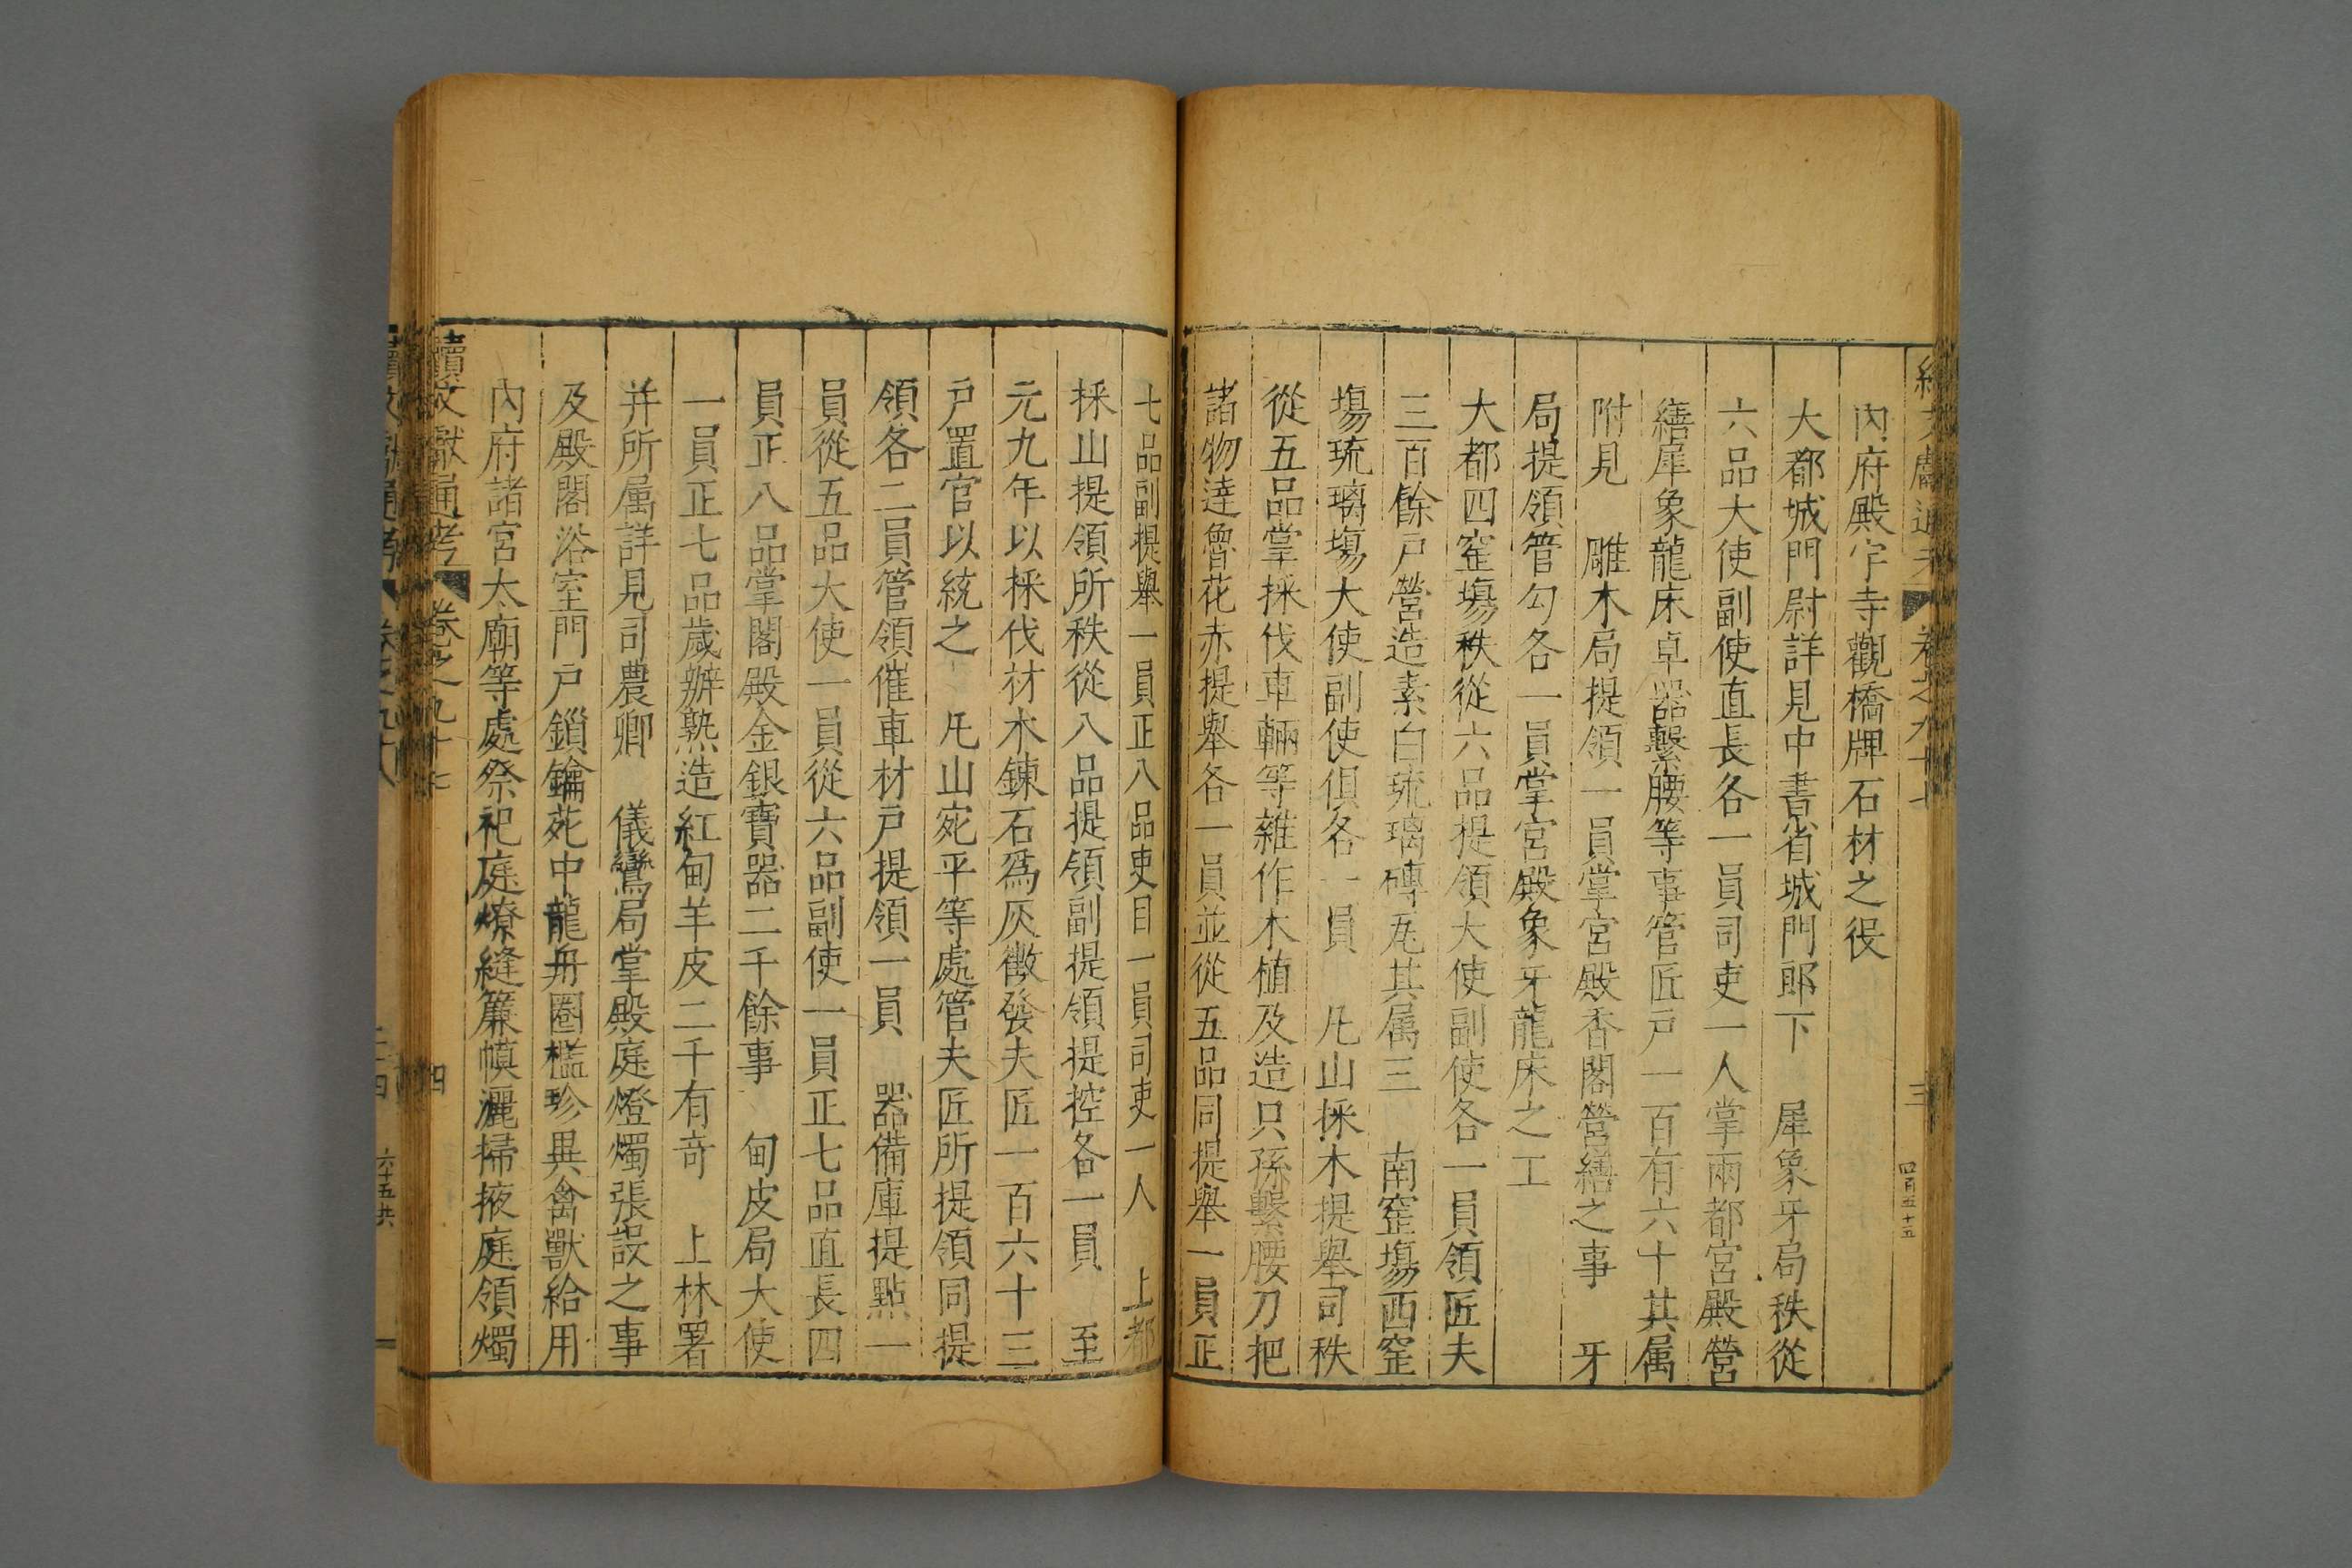 內府殿宇寺觀橋牌石材之役
大都城門尉詳見中書省城門郎下　犀象牙局秩從
六品大使副使直長各一員司吏一人掌兩都宮殿營
繕犀象龍床卓器繫腰等事管匠戶一百有六十其属
附見　雕木局提領一員掌宮殿香閣營繕之事　牙
局提領管勾各一員掌宮殿象牙龍床之工
大都四窑塲秩從六品提領大使副使各一員領匠夫
三百餘戶營造素白琉璃磚瓦其属三　南窑塲西窑
塲琉璃塲大使副使俱各一員　凡山採木提舉司秩
從五品掌採伐車輛等雜作木植及造只孫繫腰刀把
諸物達魯花赤提舉各一員並從五品同提舉一員正
七品副提舉一員正八品吏目一員司吏一人　上都
採山提領所秩從八品提領副提領提控各一員　至
元九年以採伐材木鍊石爲灰徵發夫匠一百六十三
戶置官以統之　凡山宛平等處管夫匠所提領同提
領各二員管領催車材戶提領一員　器備庫提點一
員從五品大使一員從六品副使一員正七品直長四
員正八品掌閣殿金銀寶器二千餘事　甸皮局大使
一員正七品歲辦熟造紅甸羊皮二千有奇　上林署
并所属詳見司農卿　儀鸞局掌殿庭燈燭張設之事
及殿閣浴室門戶鎖鑰苑中龍舟圈檻珍異禽獸給用
內府諸宮太廟等處祭祀庭燎縫簾幙灑掃掖庭領燭
續文獻通考　卷之九十七　四